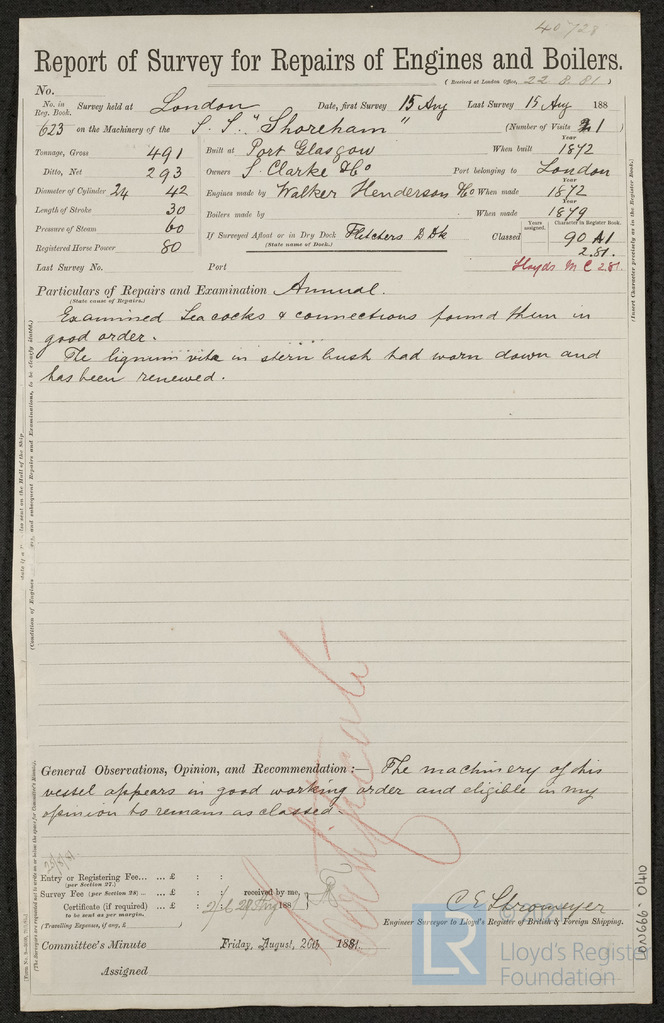 40728
Report of Survey for Repairs of Engines and Boilers.
(Received at London Office, 22.8.81)
No.
No. in Reg. Book. Survey held at London Date, first Survey 15 Aug Last Survey 15 Aug 188
623 on the Machinery of the S.S. "Shoreham" (Number of Visits 1)
Tonnage, Gross 491 Built at Port Glasgow When built 1872
Ditto, Net 293 Owners S. Clarke & Co Port belonging to London
Diameter of Cylinder 24 42 Engines made by Walker Henderson & Co When made Year 1872
Length of Stroke 30 Boilers made by When made Year 1879
Pressure of Steam 60 If Surveyed Afloat or in Dry Dock Fletchers D Dk Classed Years assigned. Character in Register Book. 90 A1
(State name of Dock.) 2.81.
Registered Horse Power 80
Lloyds M C 2.81.
Last Survey No. Port
Particulars of Repairs and Examination Annual.
(State cause of Repairs.)
Examined Sea cocks & connections found them in
good order.
The lignum vita in stern bush had worn down and
has been renewed.
(Insert Character precisely as in the Register Book.)
General Observations, Opinion, and Recommendation:— The machinery of this
vessel appears in good working order and eligible in my
opinion to remain as classed.
Entry or Registering Fee... ... £ : :
(per Section 27.)
Survey Fee (per Section 28) ... £ : : received by me,
Certificate (if required) ... £ : 188
to be sent as per margin.
(Travelling Expenses, if any, £ )
C E Stromeyer
Engineer Surveyor to Lloyd's Register of British & Foreign Shipping.
Committee's Minute Friday, August, 26th 1881.
Assigned
LR
Lloyd's Register
Foundation